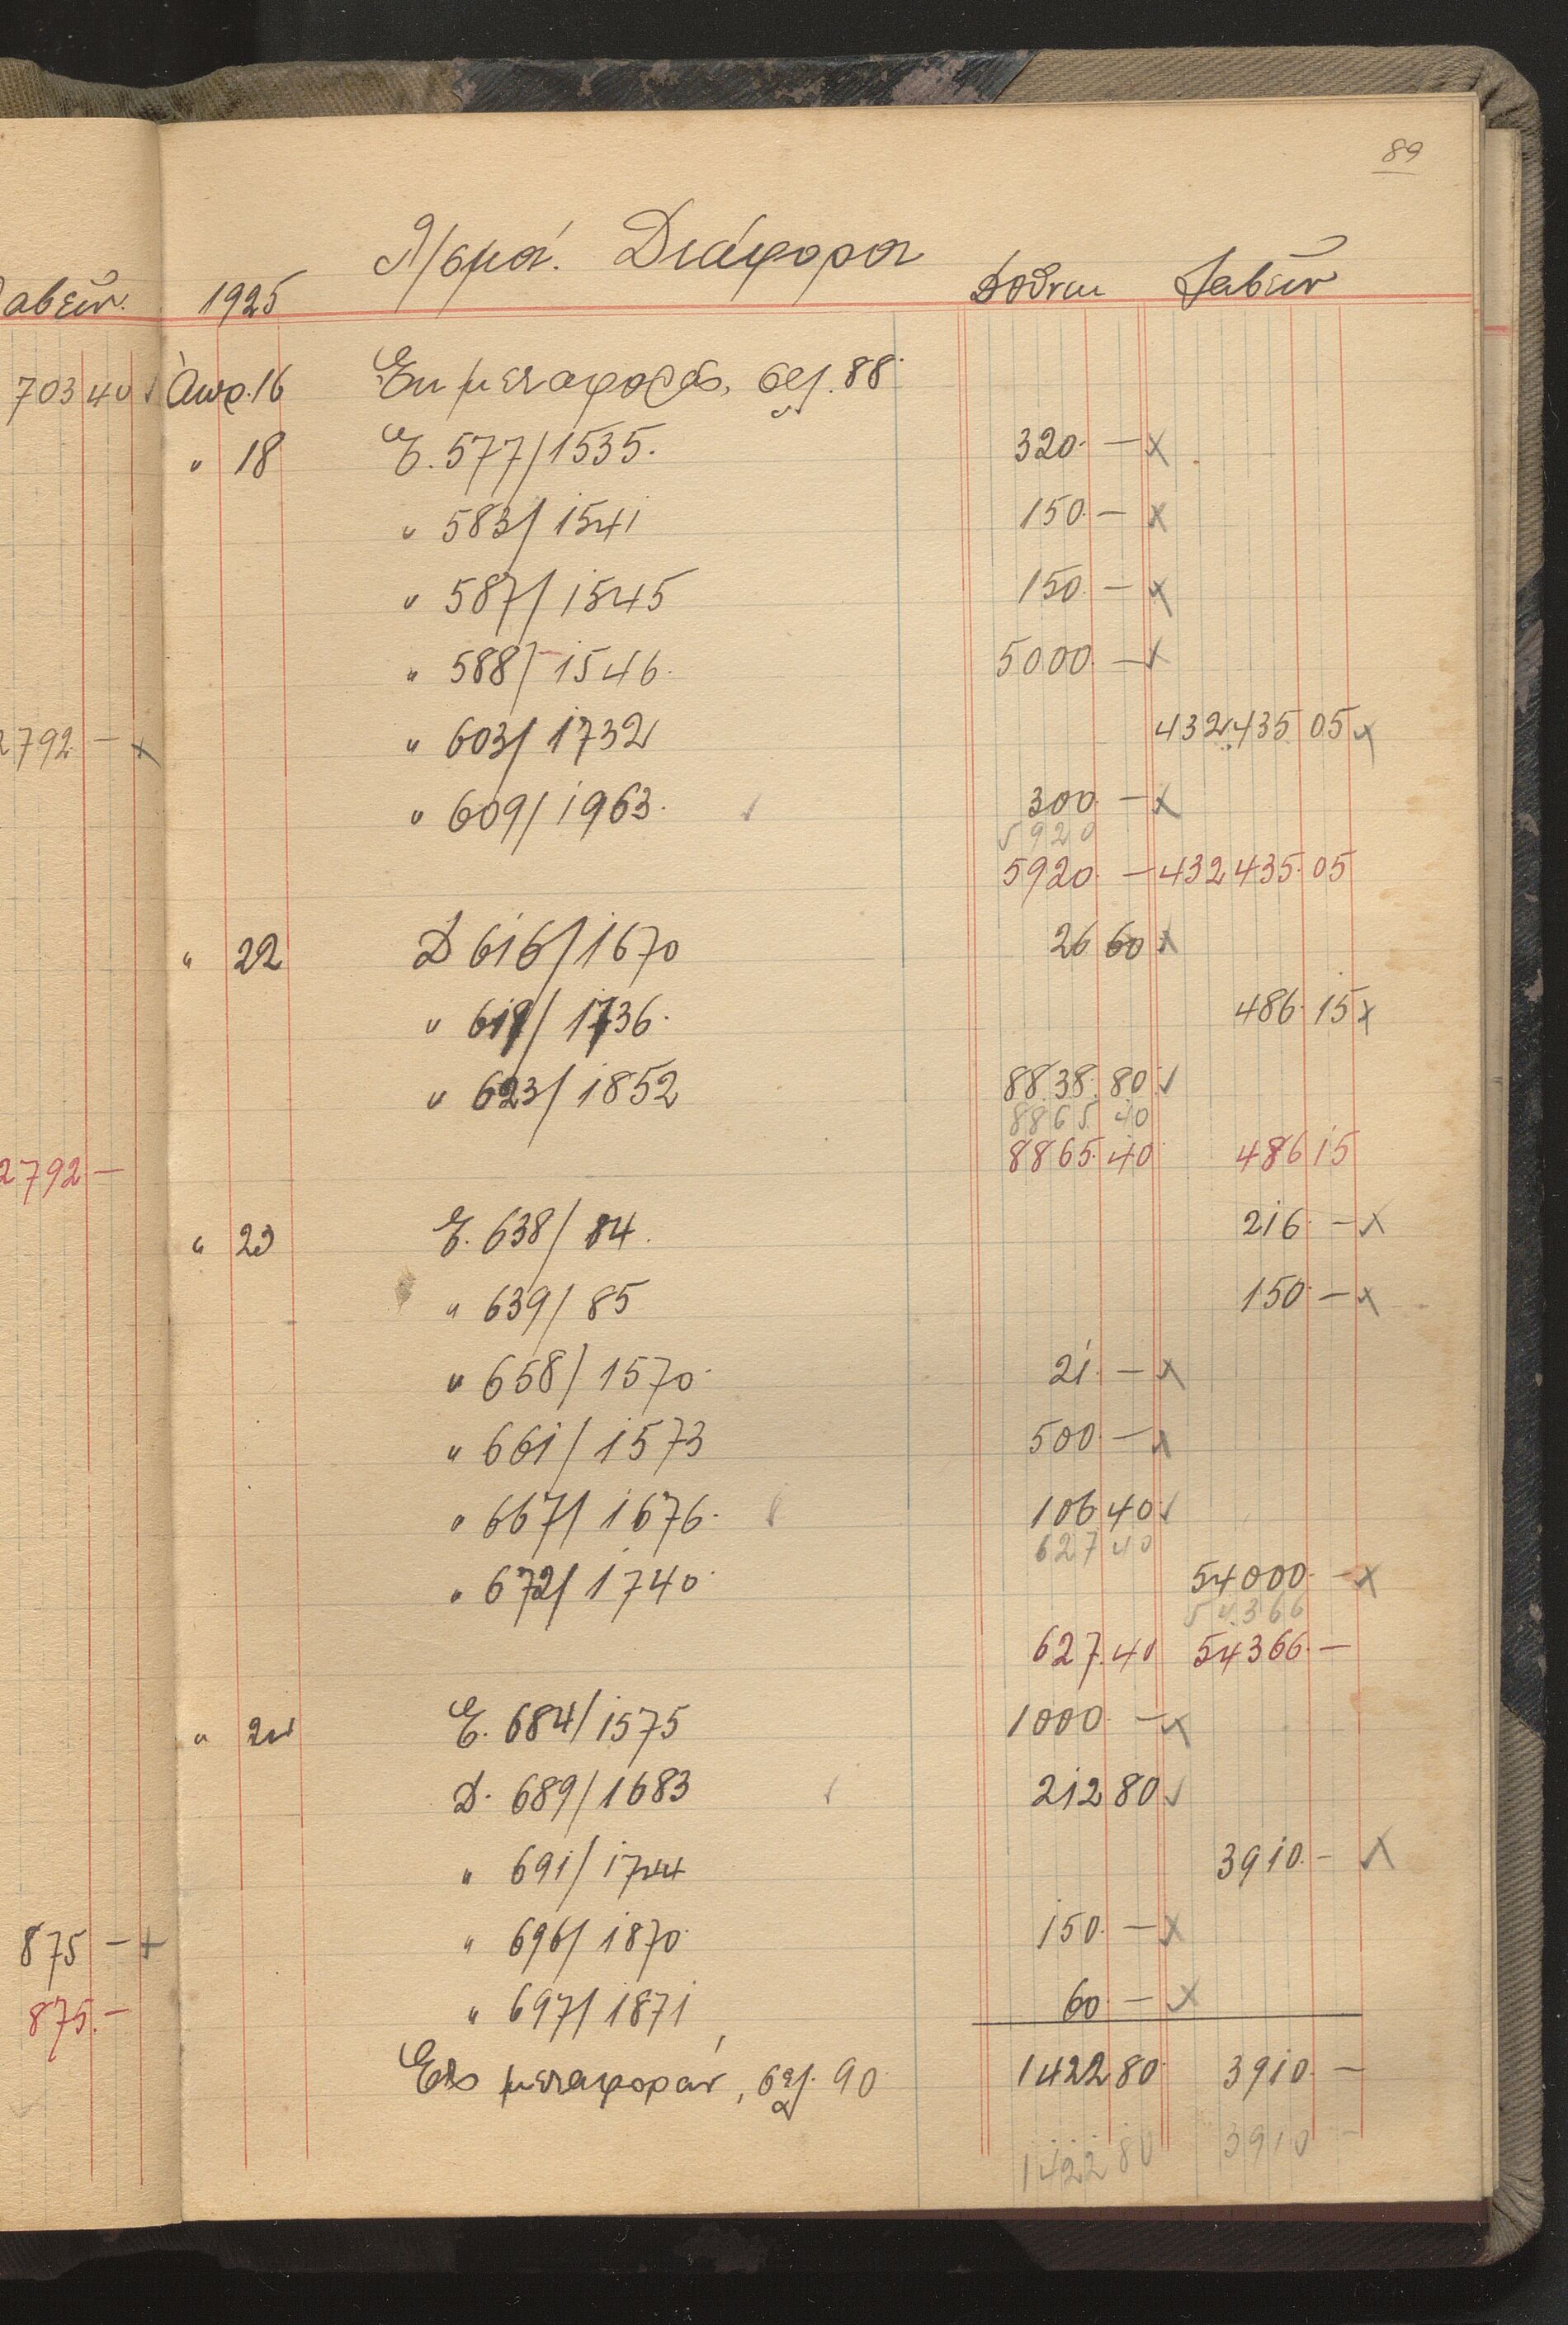 89
Λ/σμοί. Διάφοροι
1925 Δοῦναι Λαβεῖν
Ἀπρ. 16 Ἐκ μεταφορᾶς, σελ. 88
" 18 Ε. 577/1535. 320. —
" 583/1541 150. —
" 587/1545 150. —
" 588/1546. 5000. —
" 603/1732 432435 05
" 609/1963. 300. —
5920
5920. — 432435. 05
" 22 Δ 616/1670 26 60
" /1736. 486. 15
" 623/1852 8838. 80
8865. 40
8865. 40 486 15
" 23 Ε. 638/84. 216. —
" 639/85 150. —
" 658/1570. 21. —
" 661/1573 500. —
" 667/1676. 106 40
627 40
" 672/1740. 54000. —
54366
627. 40 54366. —
" 24 Ε. 684/1575 1000. —
Δ. 689/1683 212 80
" 691/1744 3910. —
" 696/1870. 150. —
" 697/1871 60. —
Εἰς μεταφοράν, σελ. 90 1422 80. 3910. —
1422 80 3910 —
αβεῖν.
703 40
2792 —
2792 —
875 —
875. —